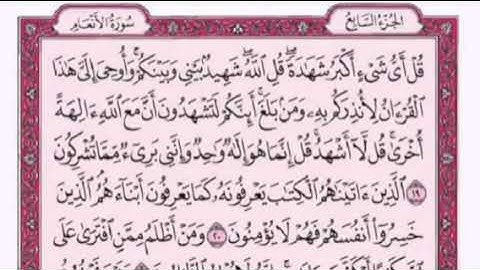 الجُزْءُ السَّابِعُ
سُورَةُ الأَنْعَام
قُلْ أَيُّ شَيْءٍ أَكْبَرُ شَهَٰدَةً ۖ قُلِ ٱللَّهُ ۖ شَهِيدٌۢ بَيْنِي وَبَيْنَكُمْ ۚ وَأُوحِيَ إِلَيَّ هَٰذَا
ٱلْقُرْءَانُ لِأُنذِرَكُم بِهِۦ وَمَنۢ بَلَغَ ۚ أَئِنَّكُمْ لَتَشْهَدُونَ أَنَّ مَعَ ٱللَّهِ ءَالِهَةً
أُخْرَىٰ ۚ قُل لَّآ أَشْهَدُ ۚ قُلْ إِنَّمَا هُوَ إِلَٰهٌ وَٰحِدٌ وَإِنَّنِي بَرِيٓءٌ مِّمَّا تُشْرِكُونَ
١٩ ٱلَّذِينَ ءَاتَيْنَٰهُمُ ٱلْكِتَٰبَ يَعْرِفُونَهُۥ كَمَا يَعْرِفُونَ أَبْنَآءَهُمُ ٱلَّذِينَ
خَسِرُوٓا۟ أَنفُسَهُمْ فَهُمْ لَا يُؤْمِنُونَ ٢٠ وَمَنْ أَظْلَمُ مِمَّنِ ٱفْتَرَىٰ عَلَى